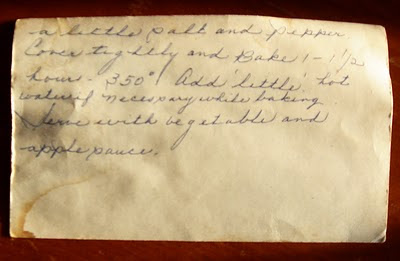 a little salt and pepper
Cover tightly and Bake 1 - 1 1/2
hours - 350° Add little hot
water if necessary while baking.
Serve with vegetable and
applesauce.